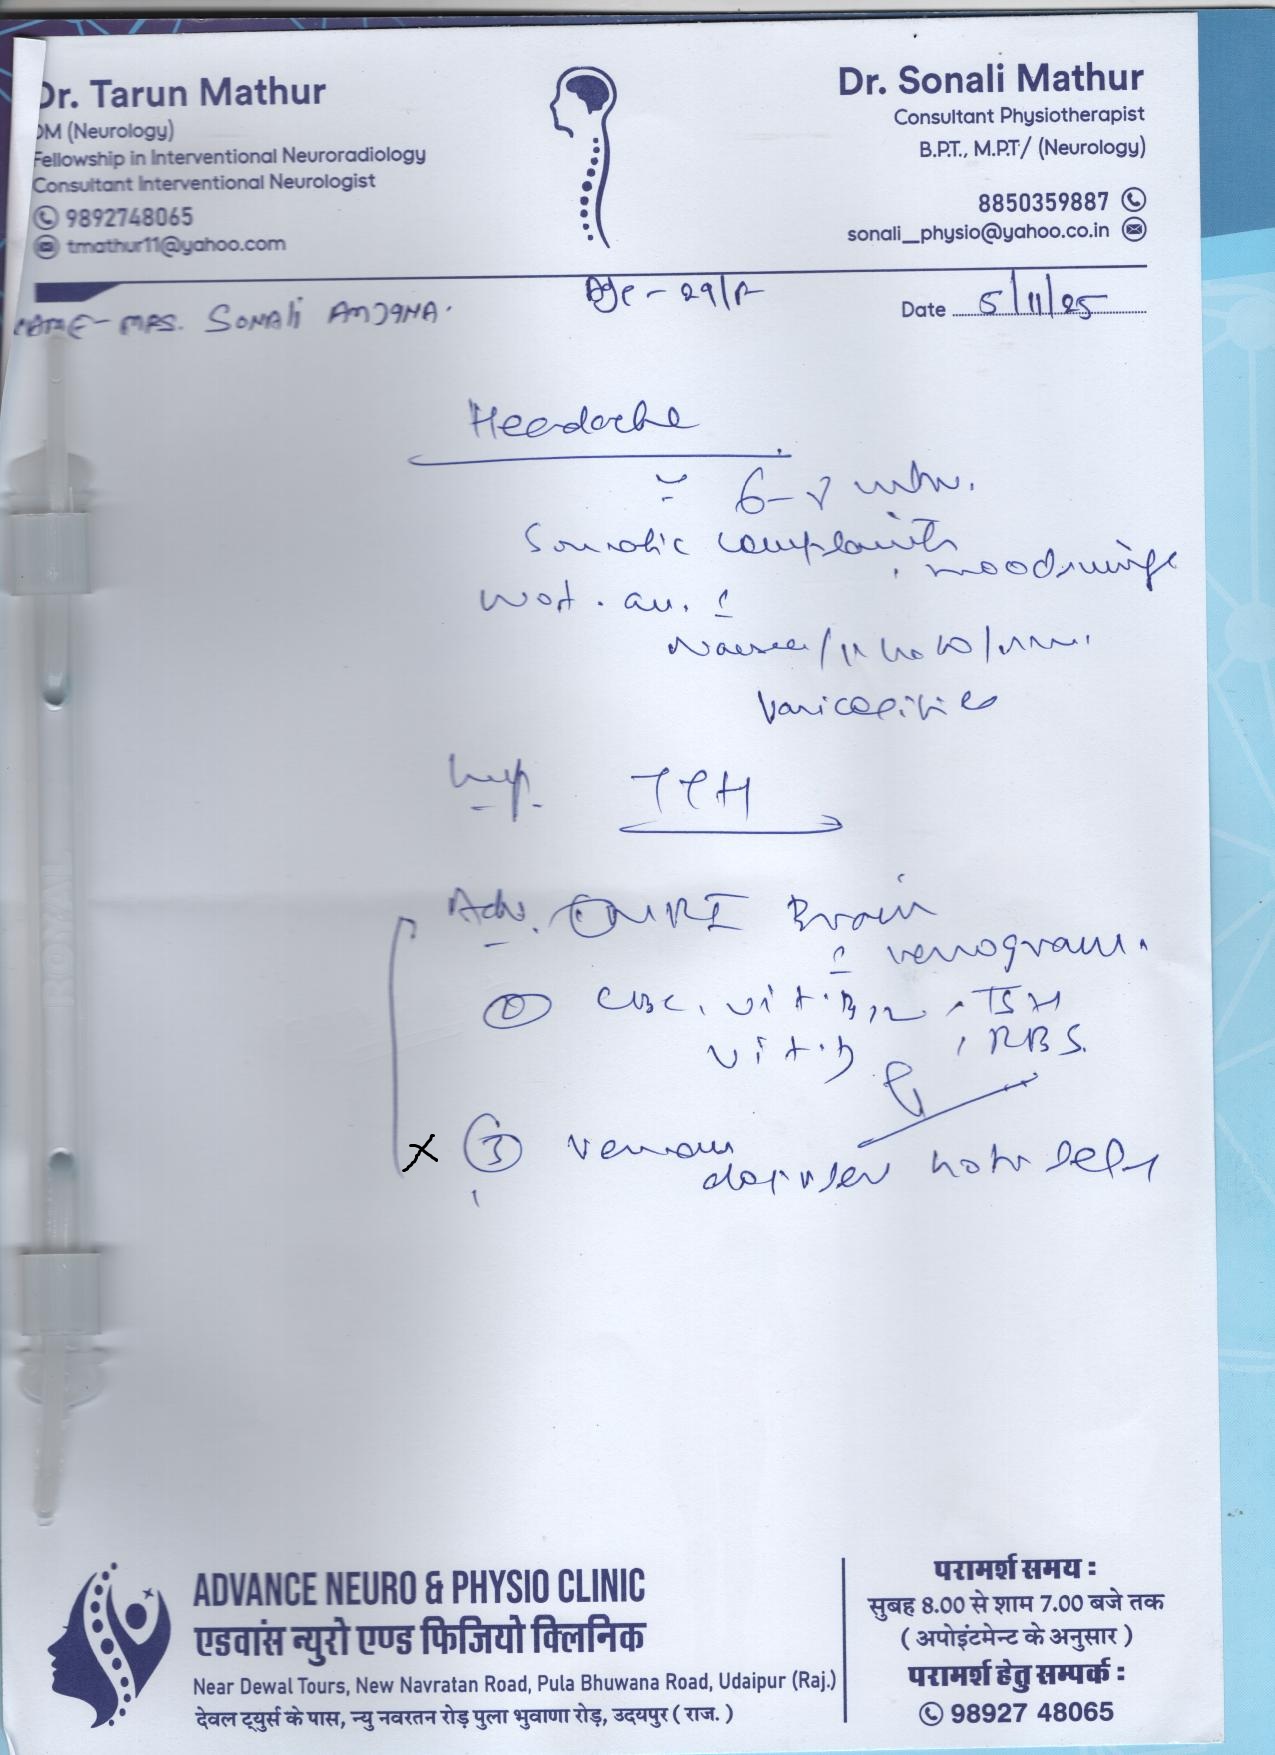 Dr. Tarun Mathur
DM (Neurology)
Fellowship in Interventional Neuroradiology
Consultant Interventional Neurologist
9892748065
tmathur11@yahoo.com
Dr. Sonali Mathur
Consultant Physiotherapist
B.P.T., M.P.T/ (Neurology)
8850359887
sonali_physio@yahoo.co.in
NAME - MRS. SONALI ANJANA.
Age - 29/F
Date 5/11/25
Headache
6-8 mths.
Somatic complaints, moodswings
Nausea/Photo/
Varicosities
Imp. TTH
Adv. ① MRI Brain
c̄ venogram.
② CBC, vit. B12, TSH
vit. D, RBS.
X ③ venous
doppler both legs
ROYAL
ADVANCE NEURO & PHYSIO CLINIC
एडवांस न्युरो एण्ड फिजियो क्लिनिक
Near Dewal Tours, New Navratan Road, Pula Bhuwana Road, Udaipur (Raj.)
देवल ट्युर्स के पास, न्यु नवरतन रोड़ पुला भुवाणा रोड़, उदयपुर ( राज. )
परामर्श समय :
सुबह 8.00 से शाम 7.00 बजे तक
( अपोइंटमेन्ट के अनुसार )
परामर्श हेतु सम्पर्क :
98927 48065